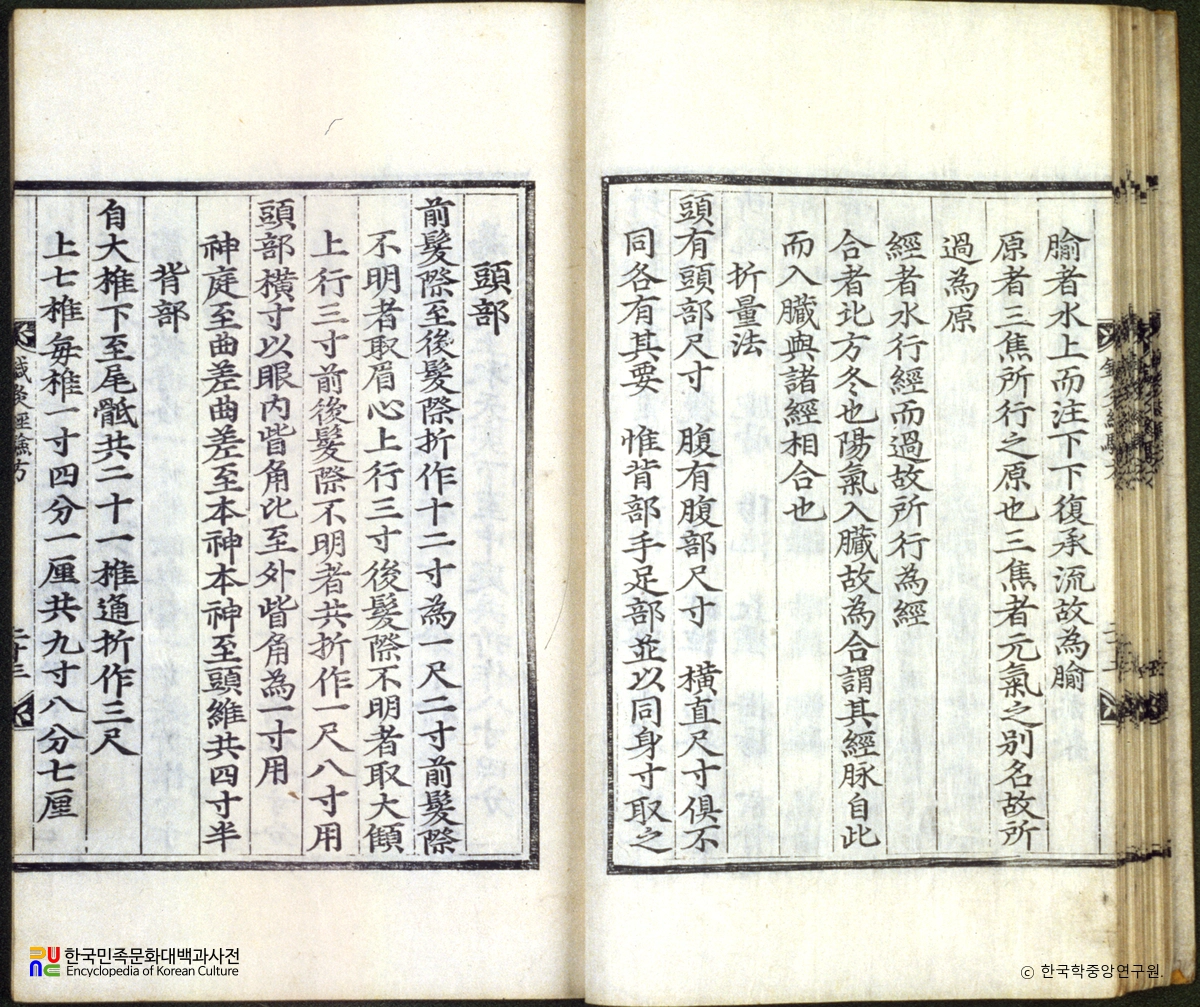 腧者水上而注下下復承流故為腧
原者三焦所行之原也三焦者元氣之别名故所
過為原
經者水行經而過故所行為經
合者北方冬也陽氣入臟故為合謂其經脉自此
而入臟與諸經相合也
折量法
頭有頭部尺寸 腹有腹部尺寸 橫直尺寸俱不
同各有其要 惟背部手足部並以同身寸取之
頭部
前髮際至後髮際折作十二寸為一尺二寸前髮際
不明者取眉心上行三寸後髮際不明者取大顀
上行三寸前後髮際不明者共折作一尺八寸用
頭部橫寸以眼内眥角比至外眥角為一寸用
神庭至曲差曲差至本神本神至頭維共四寸半
背部
自大椎下至尾骶共二十一椎通折作三尺
上七椎每椎一寸四分一厘共九寸八分七厘
鍼灸經驗方
한국민족문화대백과사전
Encyclopedia of Korean Culture
© 한국학중앙연구원.